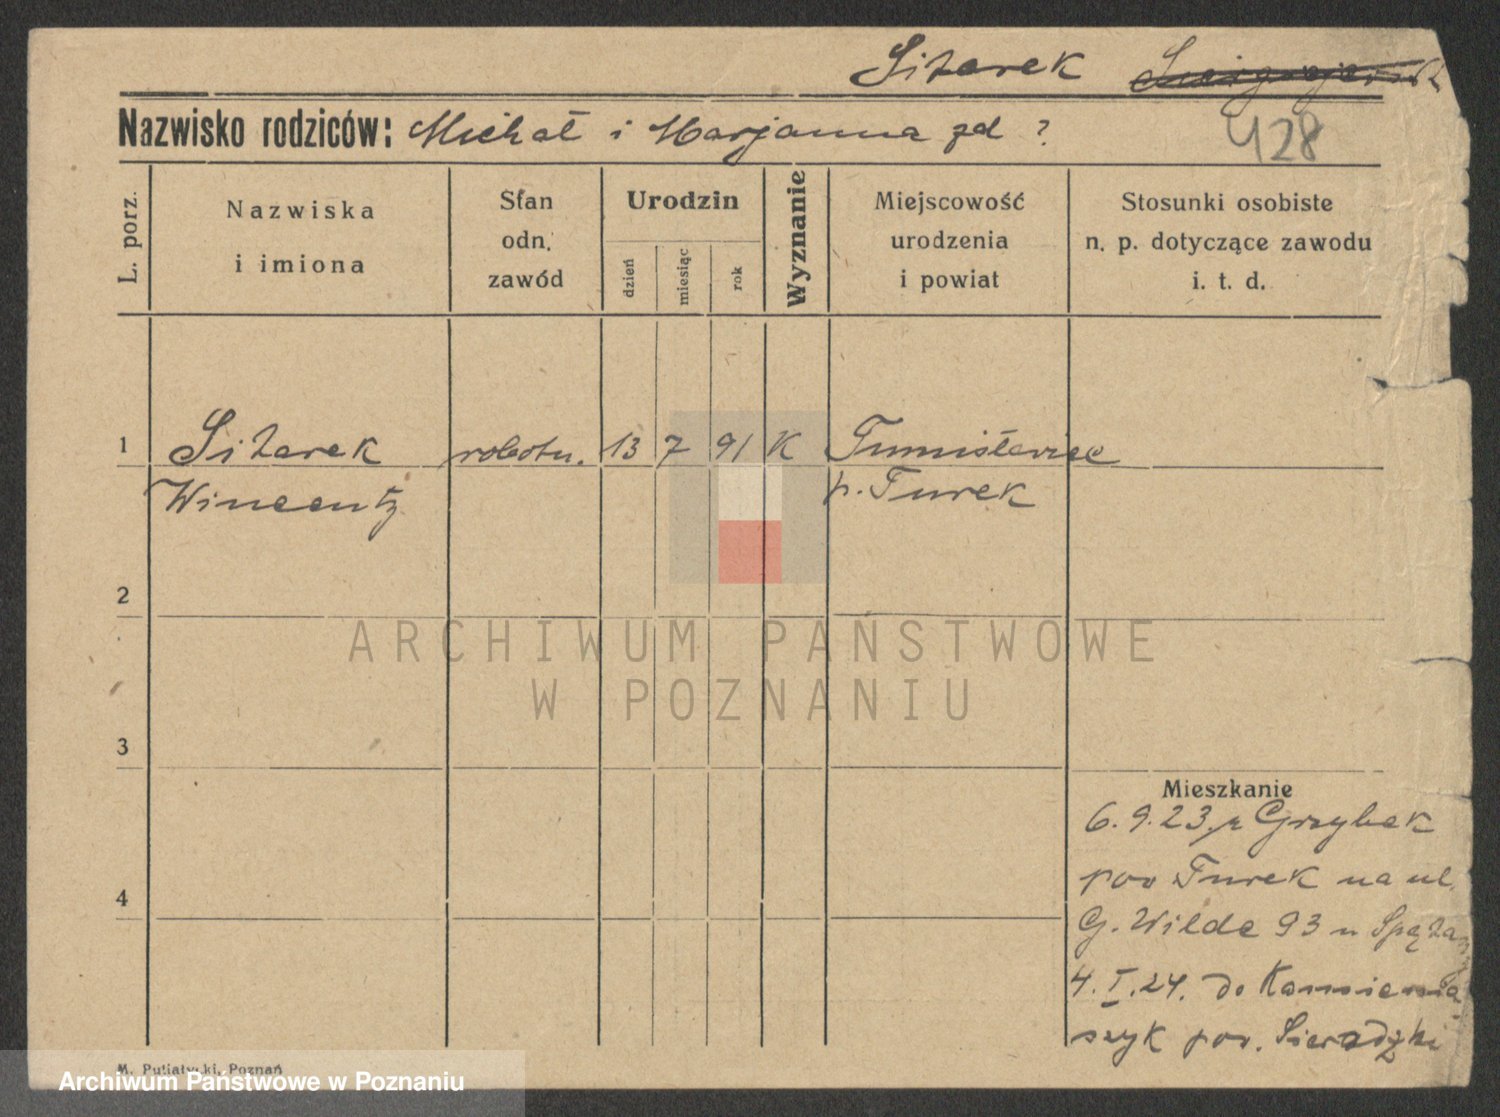 Sitarek
428
Nazwisko rodziców: Michał i Marjanna zd ?
L. porz.
Nazwiska
i imiona
Stan
odn.
zawód
Urodzin
dzień
miesiąc
rok
Wyznanie
Miejscowość
urodzenia
i powiat
Stosunki osobiste
n. p. dotyczące zawodu
i. t. d.
1 Sitarek robotn. 13 7 91 K
Wincenty p. Turek
2
ARCHIWUM PAŃSTWOWE
W POZNANIU
3
Mieszkanie
6.9.23. z Grzybek
pow Turek na ul.
4
G. Wilda 93 u
4.I.24. do
pow. Sieradzki
M. Putiatycki, Poznań
Archiwum Państwowe w Poznaniu